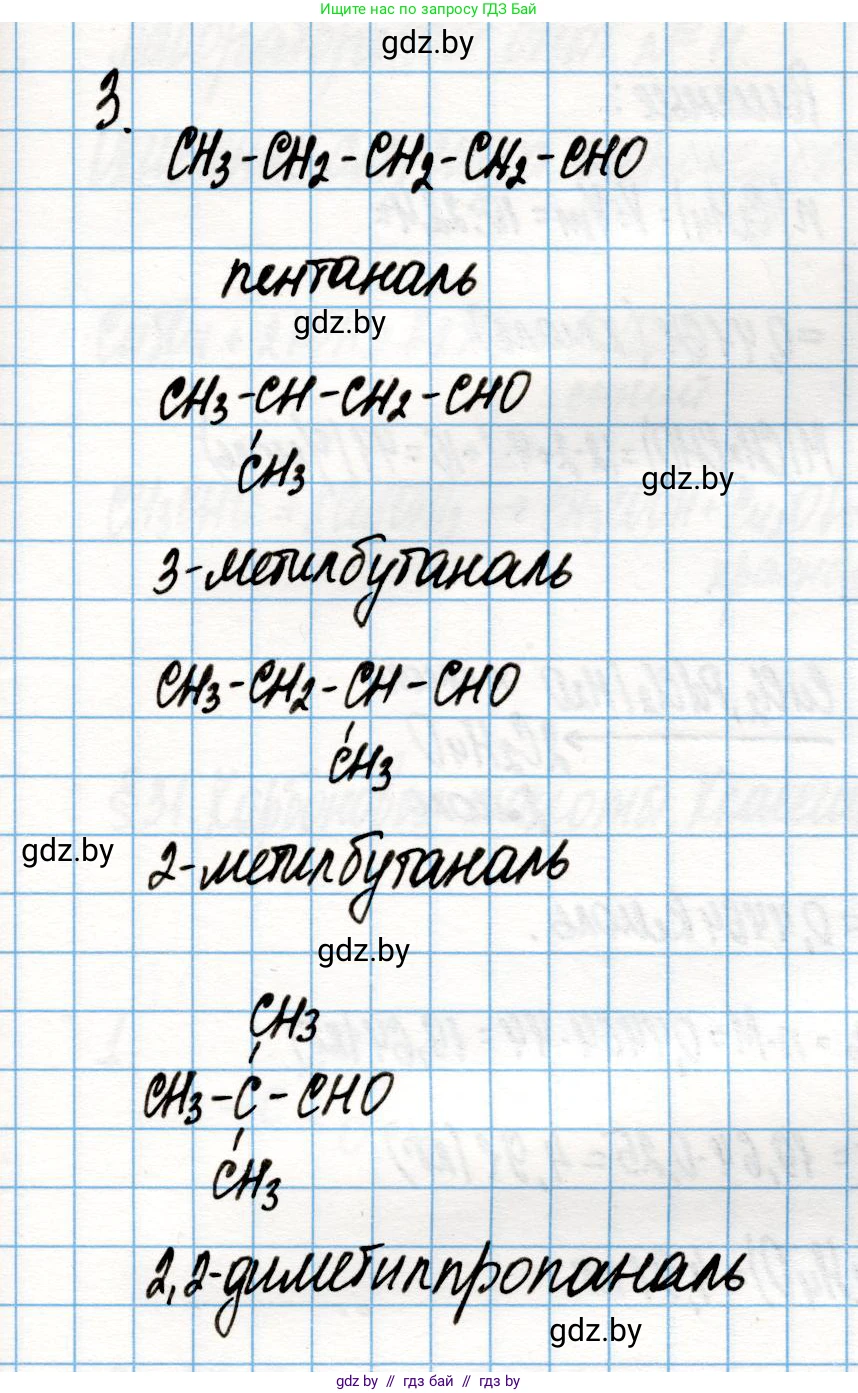 Ищите нас по запросу ГДЗ Бай
gdz.by
3.
CH3-CH2-CH2-CH2-CHO
пентаналь
gdz.by
CH3-CH-CH2-CHO
CH3
gdz.by
3-метилбутаналь
CH3-CH2-CH-CHO
CH3
gdz.by
2-метилбутаналь
gdz.by
CH3
CH3-C-CHO
CH3
2,2-диметилпропаналь
gdz.by
gdz by // гдз бай // gdz by